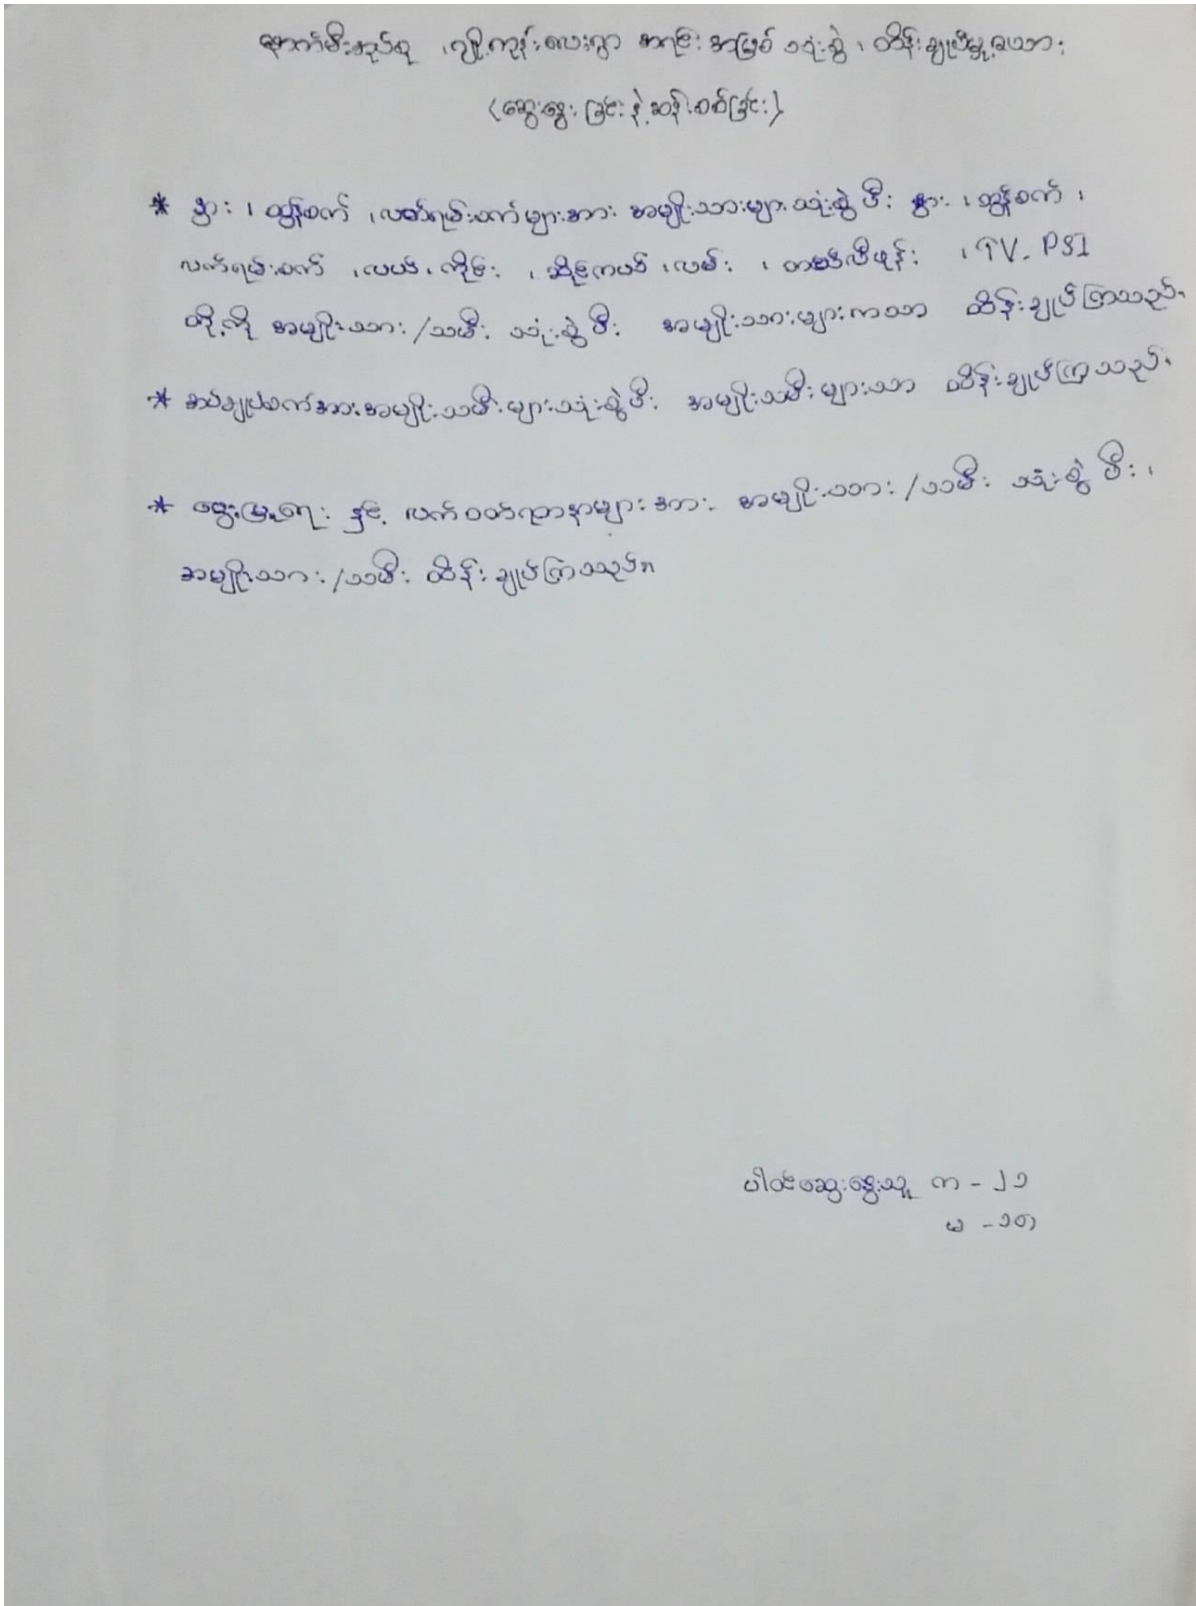 နောက်မီးအုပ်စု ၊ ကုန်းလေးရွာ အရင်းအမြစ် သုံးစွဲ ၊ ထိန်းချုပ်မှုဇယား
(ဆွေးနွေးခြင်းနဲ့ဆန်းစစ်ခြင်း)
* နွား ၊ ထွန်စက် ၊ လက်ရမ်းစက်များအား အမျိုးသားများသုံးစွဲပြီး နွား ၊ ထွန်စက် ၊
လက်ရမ်းစက် ၊ လယ် ၊ ကိုင်း ၊ ဆိုင်ကယ် ၊ လမ်း ၊ တယ်လီဖုန်း ၊ TV. PSI
တို့ကို အမျိုးသား/သမီး သုံးစွဲပြီး အမျိုးသားများကသာ ထိန်းချုပ်ကြသည်။
* အပ်ချုပ်စက်အား အမျိုးသမီးများသုံးစွဲပြီး အမျိုးသမီးများသာ ထိန်းချုပ်ကြသည်။
* မွေးမြူရေး နှင့် လက်ဝတ်ရတနာများအား အမျိုးသား/သမီး သုံးစွဲပြီး ၊
အမျိုးသား/သမီး ထိန်းချုပ်ကြသည်။
ပါဝင်ဆွေးနွေးသူ က - ၂၁
မ - ၁၅